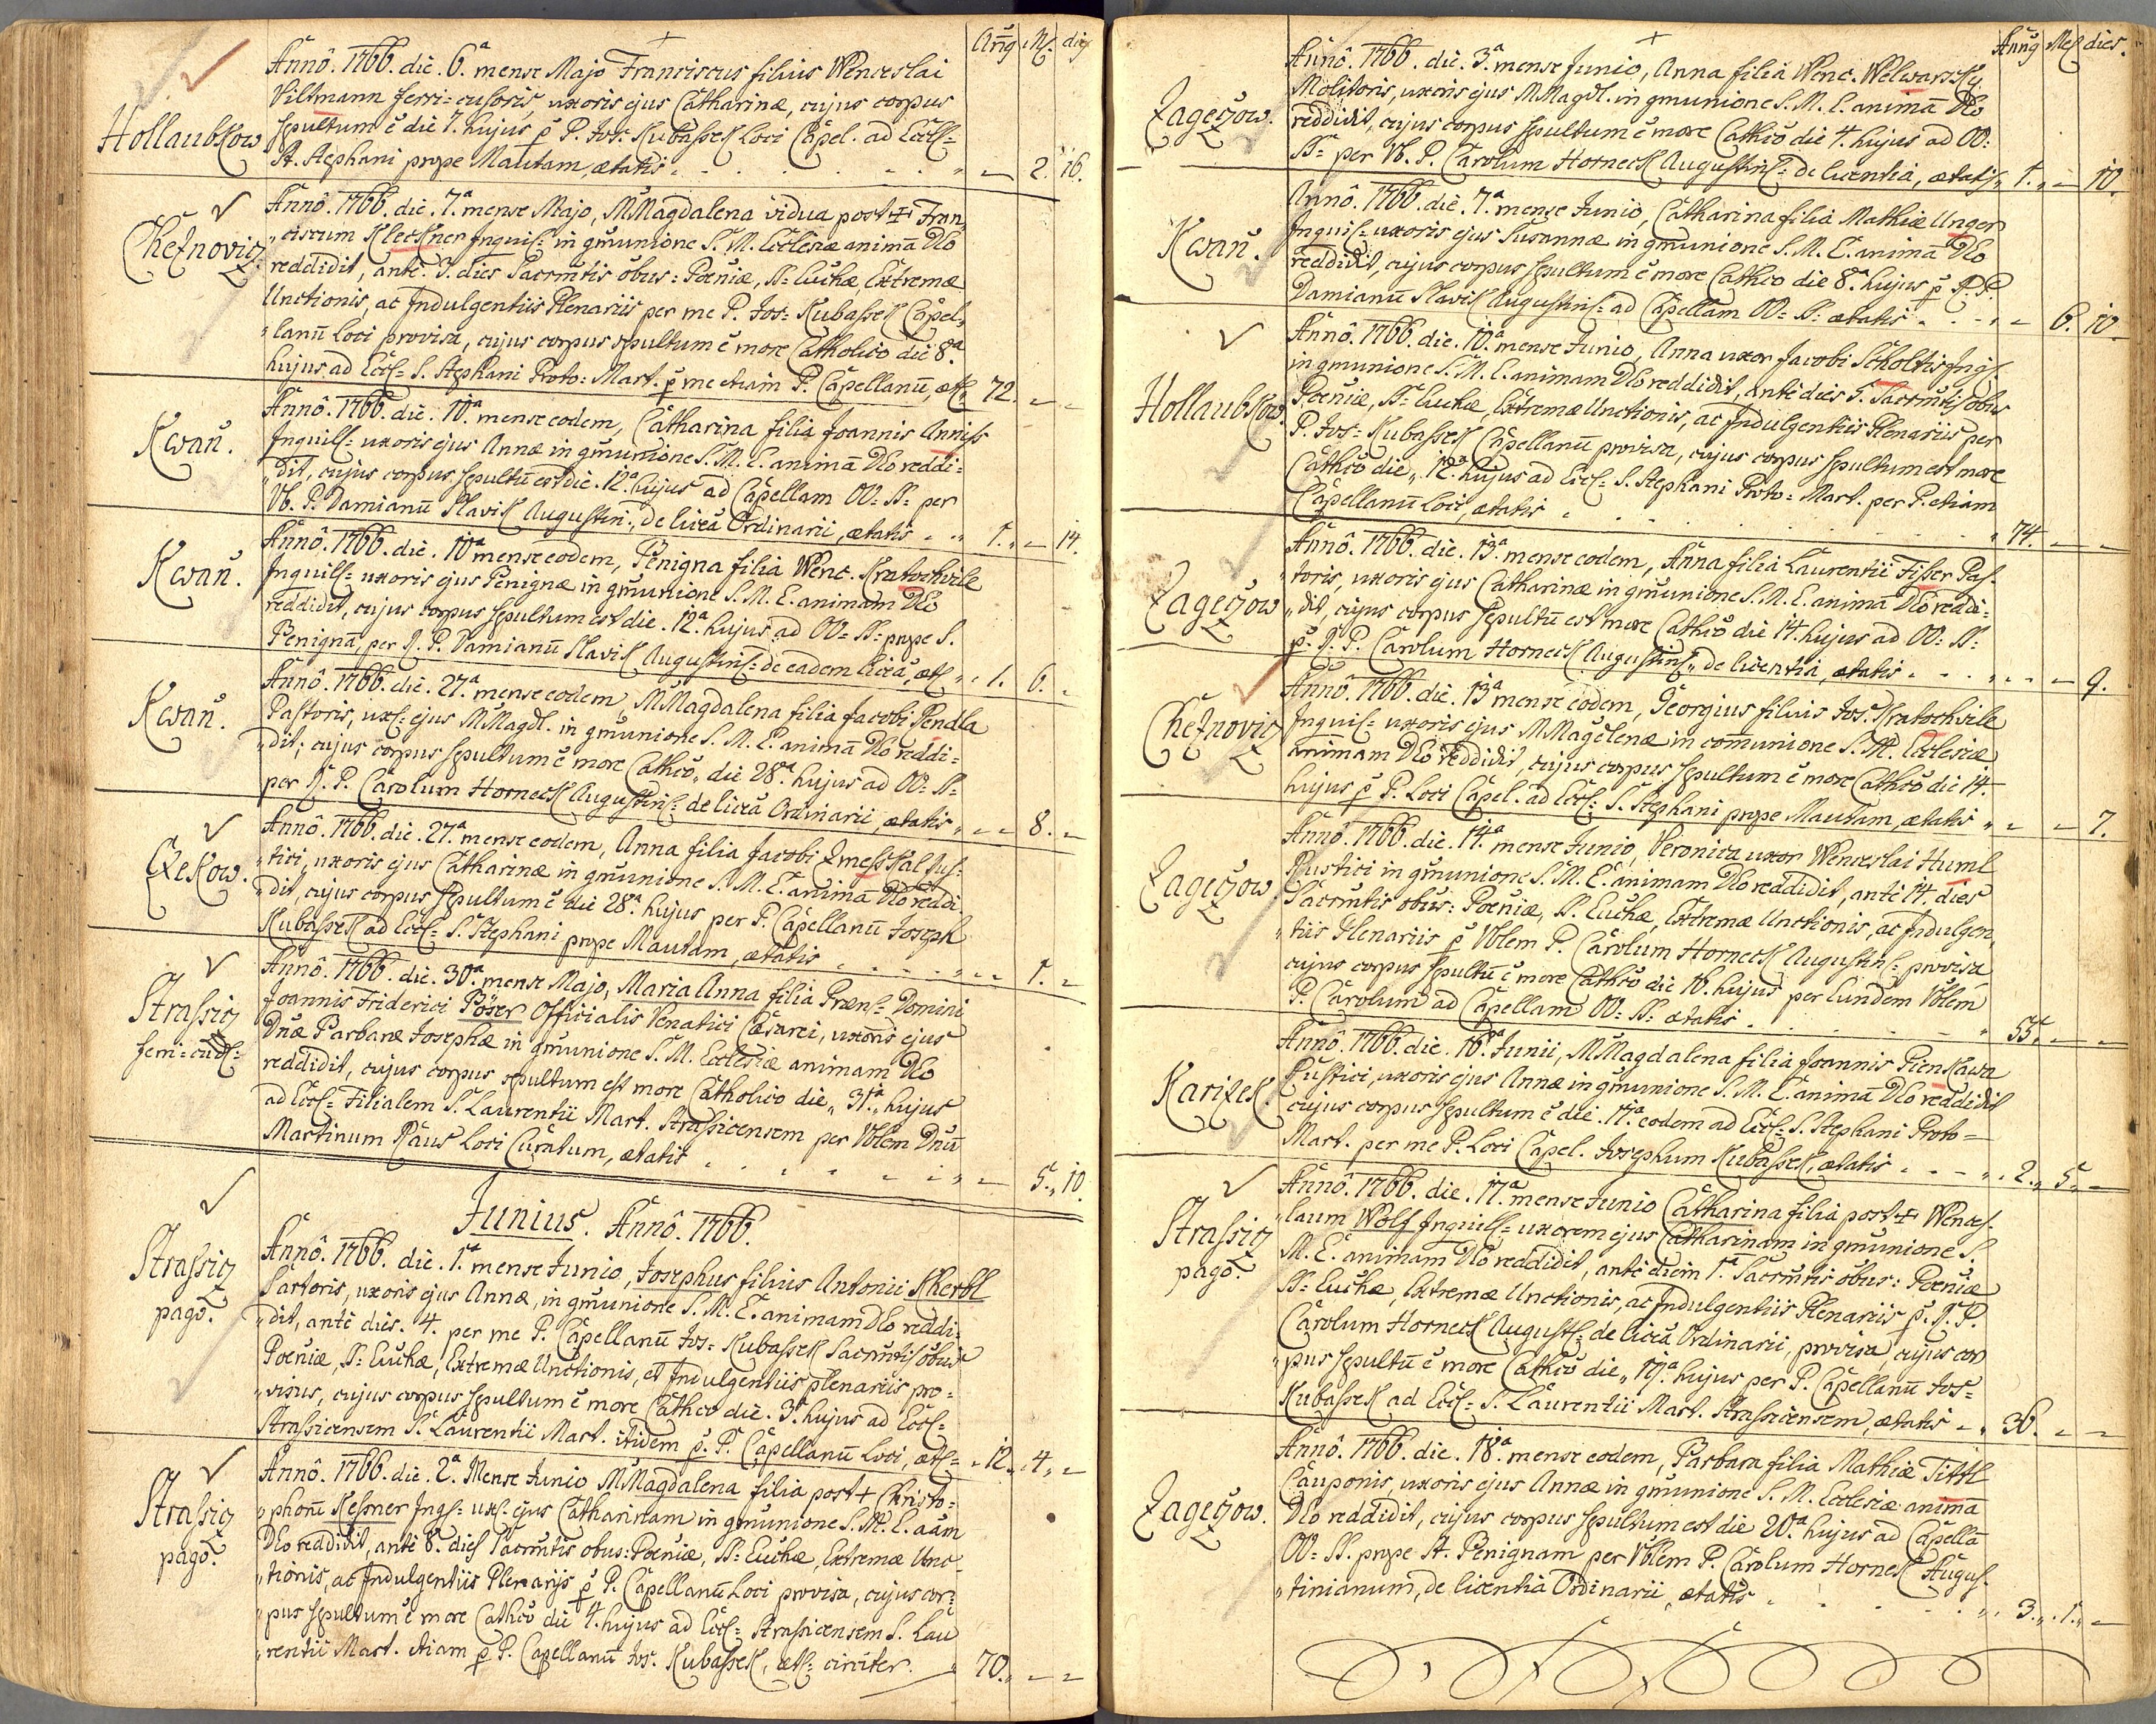 Anng Ms. dies
Hollaubkow
Annô. 1766. die. 6ª. mense Majo Franciscus filius Wenceslai
Viltmann ferri=cusoris, uxoris ejus Catharinæ, cujus corpus
sepultum ẽ die 7. hujus p̃ P. Jos: Kubassek Loci Capel. ad Eccl=
St. Stephani prope Mautam, ætatis. 2. 16.
Cheznovicz
Annô. 1766. die. 7ª. mense Majo, MMagdalena vidua post + Fran„
„ciscum Kleckner Inquil= in gmunione S. M. Ecclesiæ animã Dẽo
reddidit, antè. 3. dies Sacrmtis õbus: Pœniæ, SS= Euchæ, Extremæ
Unctionis, ac Indulgentiis Plenariis per me P. Jos= Kubassek Capel„
„lanũ Loci provisa, cujus corpus sepultum ẽ more Catholico die 8.ª
hujus ad Eccl= S. Stephani Proto= Mart. p̃ me etiam P. Capellanũ, æt. 72. - -
Kwan̄.
Annô. 1766. die. 10ª. mense eodem, Catharina filia Joannis Anniss
Inquil= uxoris ejus Annæ in gmunione S. M. E. animã Dẽo reddi=
„dit, cujus corpus sepultũ est die. 12ª. hujus ad Capellam OO= SS= per
Vb. P. Damianũ Slavik Augustin:, de licẽa Ordinarii, ætatis 1. - 14.
Kwan̄.
Annô. 1766. die. 10ª mense eodem, Benigna filia Wenc. Kratochvile
Inquil= uxoris ejus Benignæ in gmunione S. M. E. animam Dẽo
reddidit, cujus corpus sepultum est die. 12ª. hujus ad OO= SS= prope S.
Benignã, per R. P. Damianũ Slavik Augustin= de eadem licẽa, æt. 1. 6. -
Kwan̄.
Annô. 1766. die. 27ª. mense eodem, MMagdalena filia Jacobi Pendla
Pastoris, ux= ejus MMagdl. in gmunione S. M. E. animã Dẽo reddi=
„dit; cujus corpus sepultum ẽ more Cathcõ„ die 28ª. hujus ad OO= SS=
per R. P. Carolum Horneck Augustin= de licẽa Ordinarii, ætatis - 8. -
Czekow.
Annô. 1766. die. 27ª. mense eodem, Anna filia Jacobi Zmesskal Jus=
„tici, uxoris ejus Catharinæ in gmunione S. M. E. animã Dẽo reddi
„dit, cujus corpus sepultum ẽ die 28ª. hujus per P. Capellanũ Joseph
Kubassek ad Eccl= S. Stephani prope Mautam, ætatis - 1. -
Strassicz
ferri=cud=
Annô. 1766. die. 30ª. mense Majo, Maria Anna filia Præn= Domini
Joannis Friderici Pöser Officialis Venatici Cæsarei, uxoris ejus
Dnæ Barbaræ Josephæ in gmunione S. M. Ecclesiæ animam Dẽo
reddidit, cujus corpus sepultum est more Catholico die„ 31ª„ hujus
ad Eccl= Filialem S. Laurentii Mart. Strassicensem per Vblem Dnũ
Martinum Raus Loci Curatum, ætatis - 5. 10.
Junius. Annô. 1766.
Strassicz
pagõ.
Annô. 1766. die. 1ª. mense Junio, Josephus filius Antonii Kherbl
Sartoris, uxoris ejus Annæ, in gmunione S. M. E. animam Dẽo reddi=
„dit, antè dies. 4. per me P. Capellanũ Jos= Kubassek Sacrmtis õbus
Pœniæ, SS= Euchæ, Extremæ Unctionis, et Indulgentiis plenariis pro=
„visus, cujus corpus sepultum ẽ more Cathco die. 3ª. hujus ad Eccl=
Strassicensem S. Laurentii Mart. itidem p̃. P. Capellanũ Loci, æt= 12. 4. -
Strassicz
pagõ.
Annô. 1766. die. 2ª. Mense Junio MMagdalena filia post + Christo=
„phorũ Kessner Inql= ux= ejus Catharinam in gmunione S. M. E. aãm
Dẽo reddidit, antè 8. dies Sacrmtis õbus: Pœniæ, SS= Euchæ, Extremæ Unc=
„tionis, ac Indulgentiis Plenarijs p̃ P. Capellanũ Loci provisa, cujus cor=
„pus sepultum ẽ more Cathcõ die 4. hujus ad Eccl= Strassicensem S. Lau
„rentii Mart. etiam p̃ P. Capellanũ Jos. Kubassek, æt= circiter. 70. - -
Anng Mes dies.
Zageczow.
Annô. 1766. die. 3ª. mense Junio, Anna filia Wenc. Welwarzky
Molitoris, uxoris ejus MMagdl. in gmunione S. M. E. animã Dẽo
reddidit, cujus corpus sepultum ẽ more Cathcõ die 4. hujus ad OO=
SS= per Vb. P. Carolum Horneck Augustin= de licentia, ætatis 1. - 10.
Kwan̄.
Annô. 1766. die. 7ª. mense Junio, Catharina filia Mathiæ Unger
Inquil= uxoris ejus Susannæ in gmunione S. M. E. animã Dẽo
reddidit, cujus corpus sepultum ẽ more Cathco die 8ª. hujus p̃ R. P.
Damianũ Slavik Augustin= ad Capellam OO= SS= ætatis - 6. 10.
Hollaubkow.
Annô. 1766. die. 10ª. mense Junio, Anna uxor Jacobi Scholtis Inql.
in gmunione S. M. E. animam Dẽo reddidit, antè dies 5. Sacrmtis õbus
Pœniæ, SS= Euchæ, Extremæ Unctionis, ac Indulgentiis Plenariis per
P. Jos= Kubassek Capellanũ provisa, cujus corpus sepultum est more
Cathco die„ 12ª. hujus ad Eccl= S. Stephani Proto= Mart. per P. etiam
Capellanũ Loci, ætatis 74. - -
Zageczow
Annô. 1766. die. 13ª. mense eodem, Anna filia Laurentii Fisser Pas=
„toris, uxoris ejus Catharinæ in gmunione S. M. E. animã Dẽo reddi=
„dit, cujus corpus sepultũ est more Cathcõ die 14. hujus ad OO= SS=
p̃. R. P. Carolum Horneck Augustin„ de licentia, ætatis - - 9.
Cheznovicz
Annô. 1766. die. 13ª mense eodem, Georgius filius Jos. Kratochvile
Inquil= uxoris ejus MMagelenæ in communione S. M. Ecclesiæ
animam Dẽo reddidit, cujus corpus sepultum ẽ more Cathcõ die 14.
hujus p̃ P. Loci Capel. ad Eccl= S. Stephani prope Mautam, ætatis - - 7.
Zageczow.
Annô. 1766. die. 14ª. mense Junio, Veronica uxor Wenceslai Huml
Rustici in gmunione S. M. E. animam Dẽo reddidit, antè 14. dies
Sacrmtis õbus: Pœniæ, SS. Euchæ, Extremæ Unctionis, ac Indulgen„
„tiis Plenariis p̃ Vblem P. Carolum Horneck Augustin= provisa
cujus corpus sepultũ ẽ more Cathcõ die 16. hujus per Eundem Vblem
P. Carolum ad Capellam OO= SS= ætatis 55. - -
Karizek
Annô. 1766. die. 16ª. Junii, MMagdalena filia Joannis Pienkawa
Rustici, uxoris ejus Annæ in gmunione S. M. E. animã Dẽo reddidit
cujus corpus sepultum ẽ die. 17ª. eodem ad Eccl= S. Stephani Proto=
Mart. per me P. Loci Capel. Josephum Kubassek, ætatis 2. 5. -
Strassicz
pagõ.
Annô. 1766. die. 17ª. mense Junio Catharina filia post + Wences=
„laum Wolf Inquil= uxorem ejus Catharinam in gmunione S.
M. E. animam Dẽo reddidit, antè diem 1ª. Sacrmtis õbus: Pœniæ
SS= Euchæ, Extremæ Unctionis, ac Indulgentiis Plenariis p̃. R. P.
Carolum Horneck August= de licẽa Ordinarii, provisa, cujus cor
„pus sepultũ ẽ more Cathcõ die„ 19ª. hujus per P. Capellanũ Jos=
Kubassek ad Eccl= S. Laurentii Mart. Strassicensem, ætatis 36. - -
Zageczow.
Annô. 1766. die. 18ª. mense eodem, Barbara filia Mathiæ Tittl
Cauponis, uxoris ejus Annæ in gmunione S. M. Ecclesiæ animã
Dẽo reddidit, cujus corpus sepultum est die 20ª. hujus ad Capellã
OO= SS. prope St. Benignam per Vblem P. Carolum Horneck Augus=
„tinianum, de licentia Ordinarii, ætatis 3. 1. -